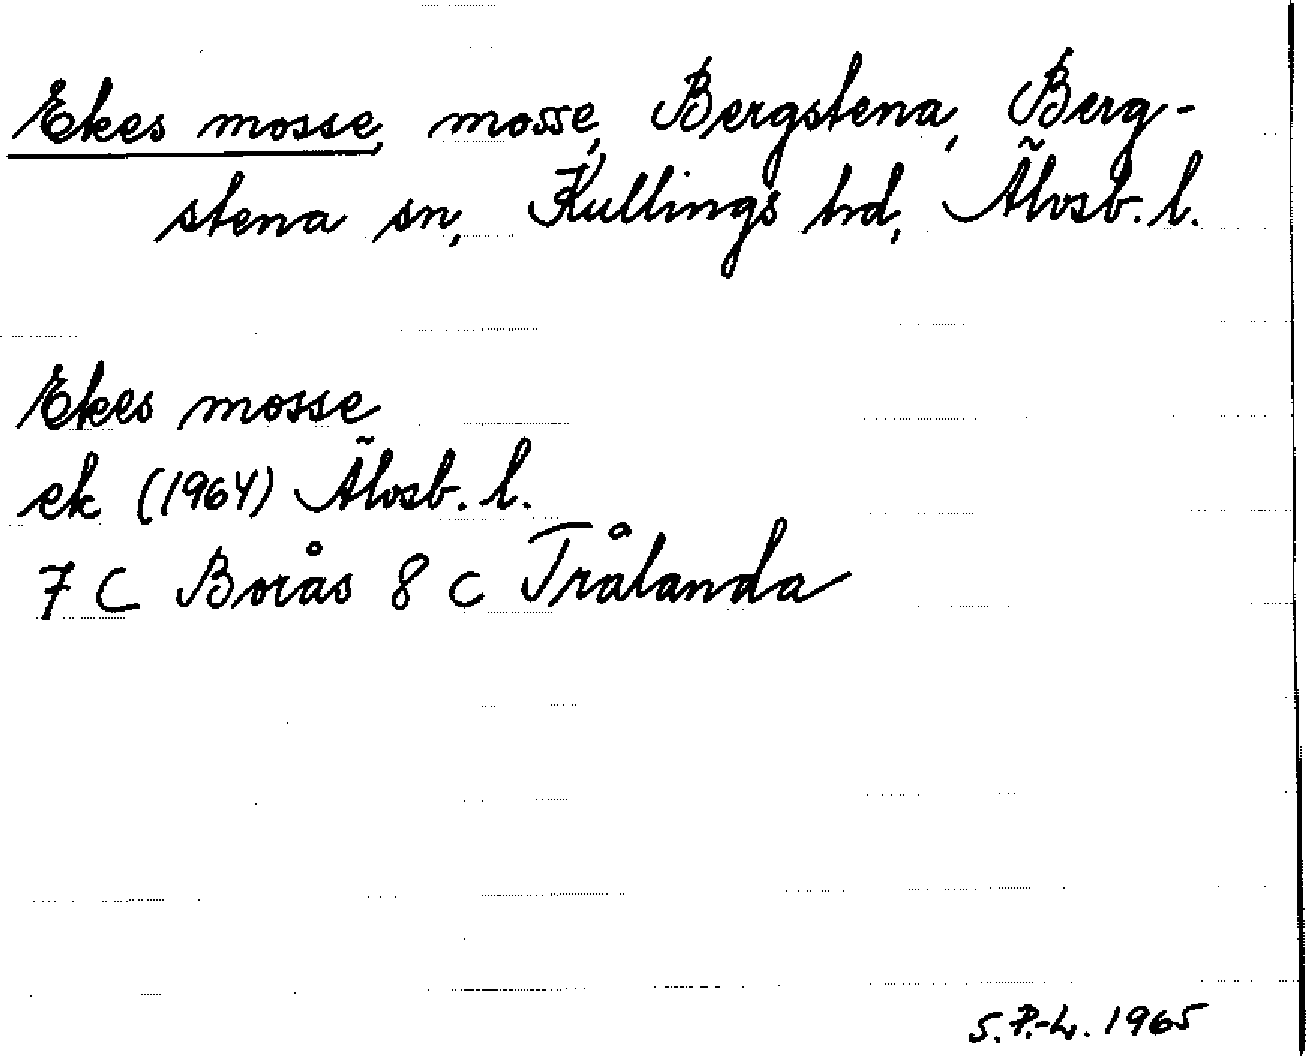 Ekes mosse, mosse, Bergstena, Berg-
stena sn, Kullings hd, Älvsb. l.
Ekes mosse
ek (1964) Älvsb. l.
7 C Borås 8 c Trålanda
S. P.-L. 1965